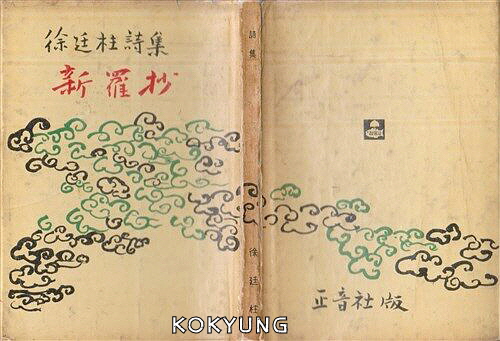 徐廷柱詩集
新羅抄
詩集
徐廷柱
正音社版
KOKYUNG